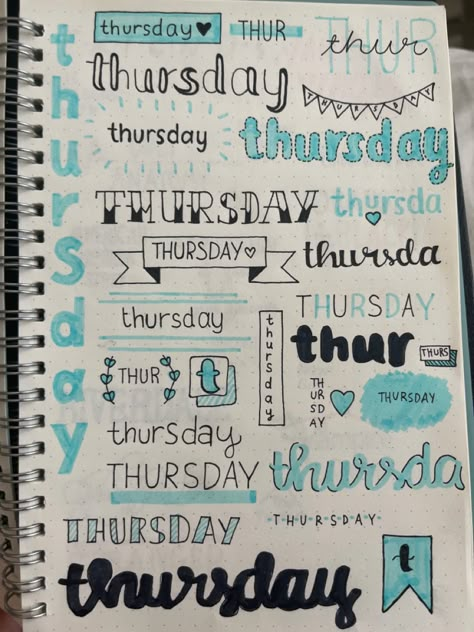 thursday
thursday
THUR
thur
THUR
thursday
THURSDAY
thursday
thursday
THURSDAY
thursda
THURSDAY
thursda
thursday
thursday
THURSDAY
thur
THURS
THUR
t
TH
UR
SD
AY
THURSDAY
thursday
THURSDAY
thursda
THURSDAY
T·H·U·R·S·D·A·Y
thursday
t